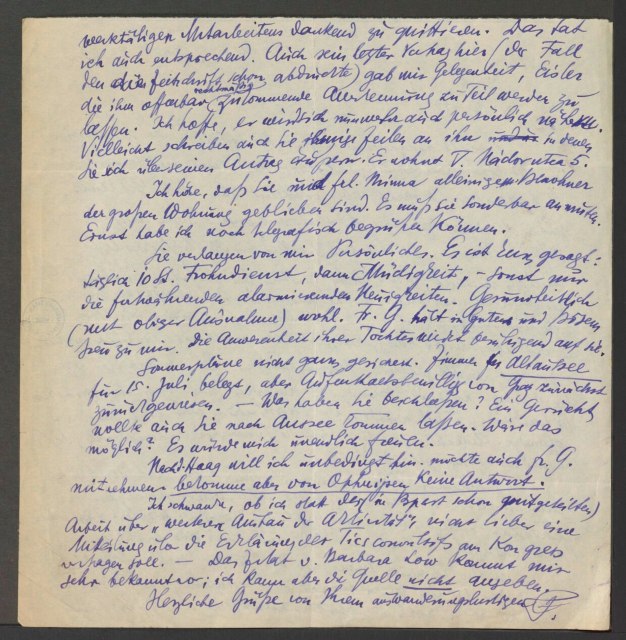 werktätigen Mitarbeitens dankend zu quittieren. Das tat
ich auch entsprechend. Auch sein letzter hier (der Fall
den die Zeitschrift schon abdruckte) gab mir Gelegenheit, Eisler
die ihm offenbar rechtmässig zukommende Anerkennung zu Teil werden zu
lassen. Ich hoffe, er wird sich nunmehr auch persönlich
Vielleicht schreiben auch Sie einige Zeilen an ihn in denen
Sie sich über seinen Antrag äussern. Er wohnt V. Nádorutca 5.
Ich höre, daß Sie und Frl. Minna alleinige Bewohner
der großen Wohnung geblieben sind. Es muß Sie sonderbar anmuten.
Ernst habe ich noch telegrafisch begrüßen können.
Sie verlangen von mir Persönliches. Es ist kurz gesagt:
täglich 10 St. Frohndienst, dann Müdigkeit, – sonst nur
die fortwährenden alarmierenden Neuigkeiten. Gesundheitlich
(mit obiger Ausnahme) wohl. Fr. G. hält in Gutem und Bösem
treu zu mir. Die Anwesenheit ihrer Tochter wirkt beruhigend auf sie.
Sommerpläne nicht ganz gesichert. Zimmer in Altaussee
für 15. Juli belegt, aber Aufenthaltsbewilligung von zunächst
zurückgewiesen. – Was haben Sie beschlossen? Ein Gerücht
wollte auch Sie nach Aussee kommen lassen. Wäre das
möglich? Es würde mich unendlich freuen.
Nach d. Haag will ich unbedingt hin. möchte auch Fr. G.
mitnehmen bekomme aber von Ophuijsen keine Antwort.
Ich schwanke, ob ich statt der (in Bpest schon mitgeteilten)
Arbeit über „weiteren Ausbau der Aktivität" nicht lieber eine
Mitteilung über die Erklärung des Tic convulsif am Kongress
vortragen soll. – Das Zitat v. Barbara Low kommt mir
sehr bekannt vor; ich kann aber die Quelle nicht angeben.
Herzliche Grüße von Ihrem auswanderungslustigen F.